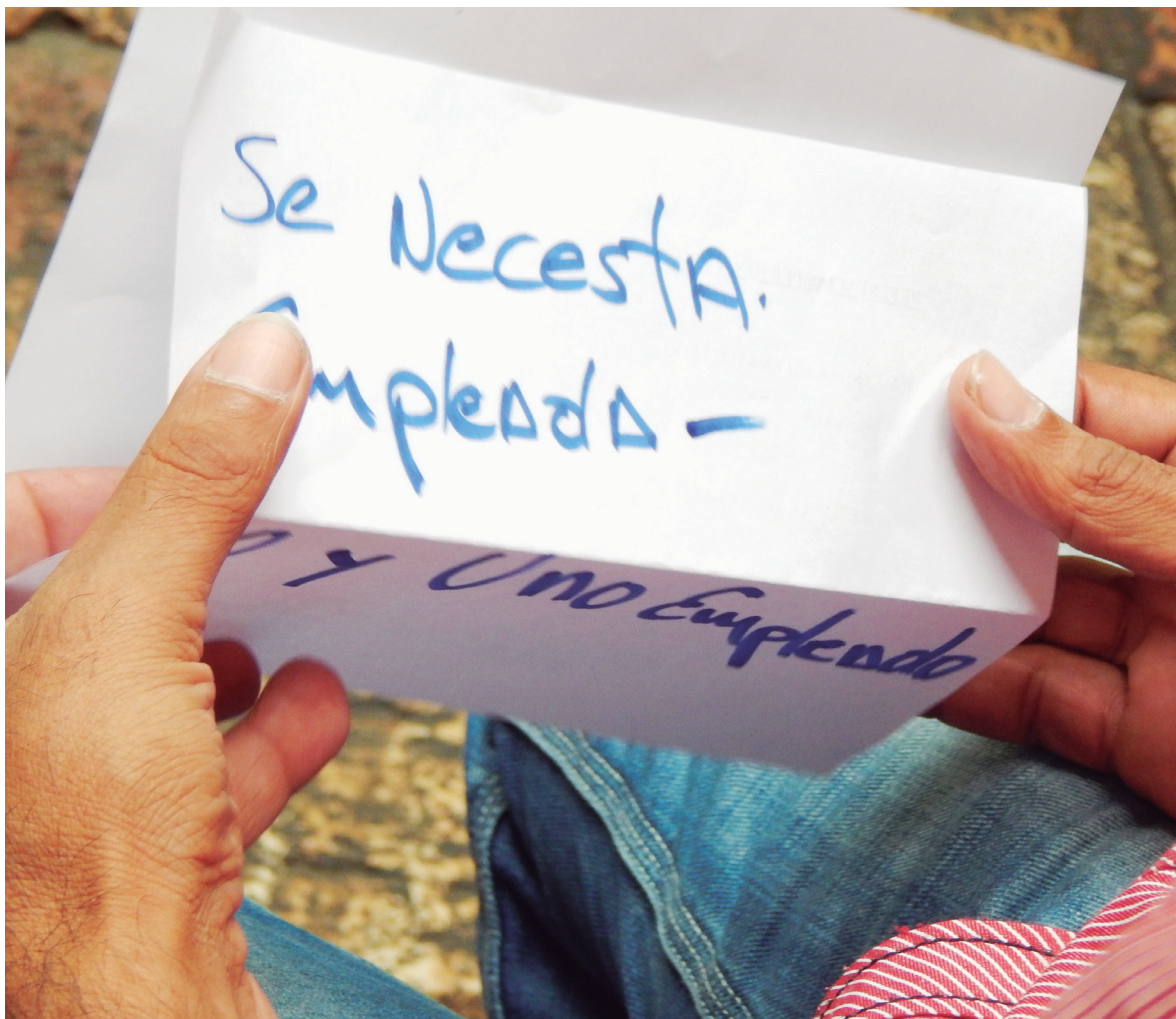 Se NecestA.
EmpleAdA -
y Uno EmpleAdo